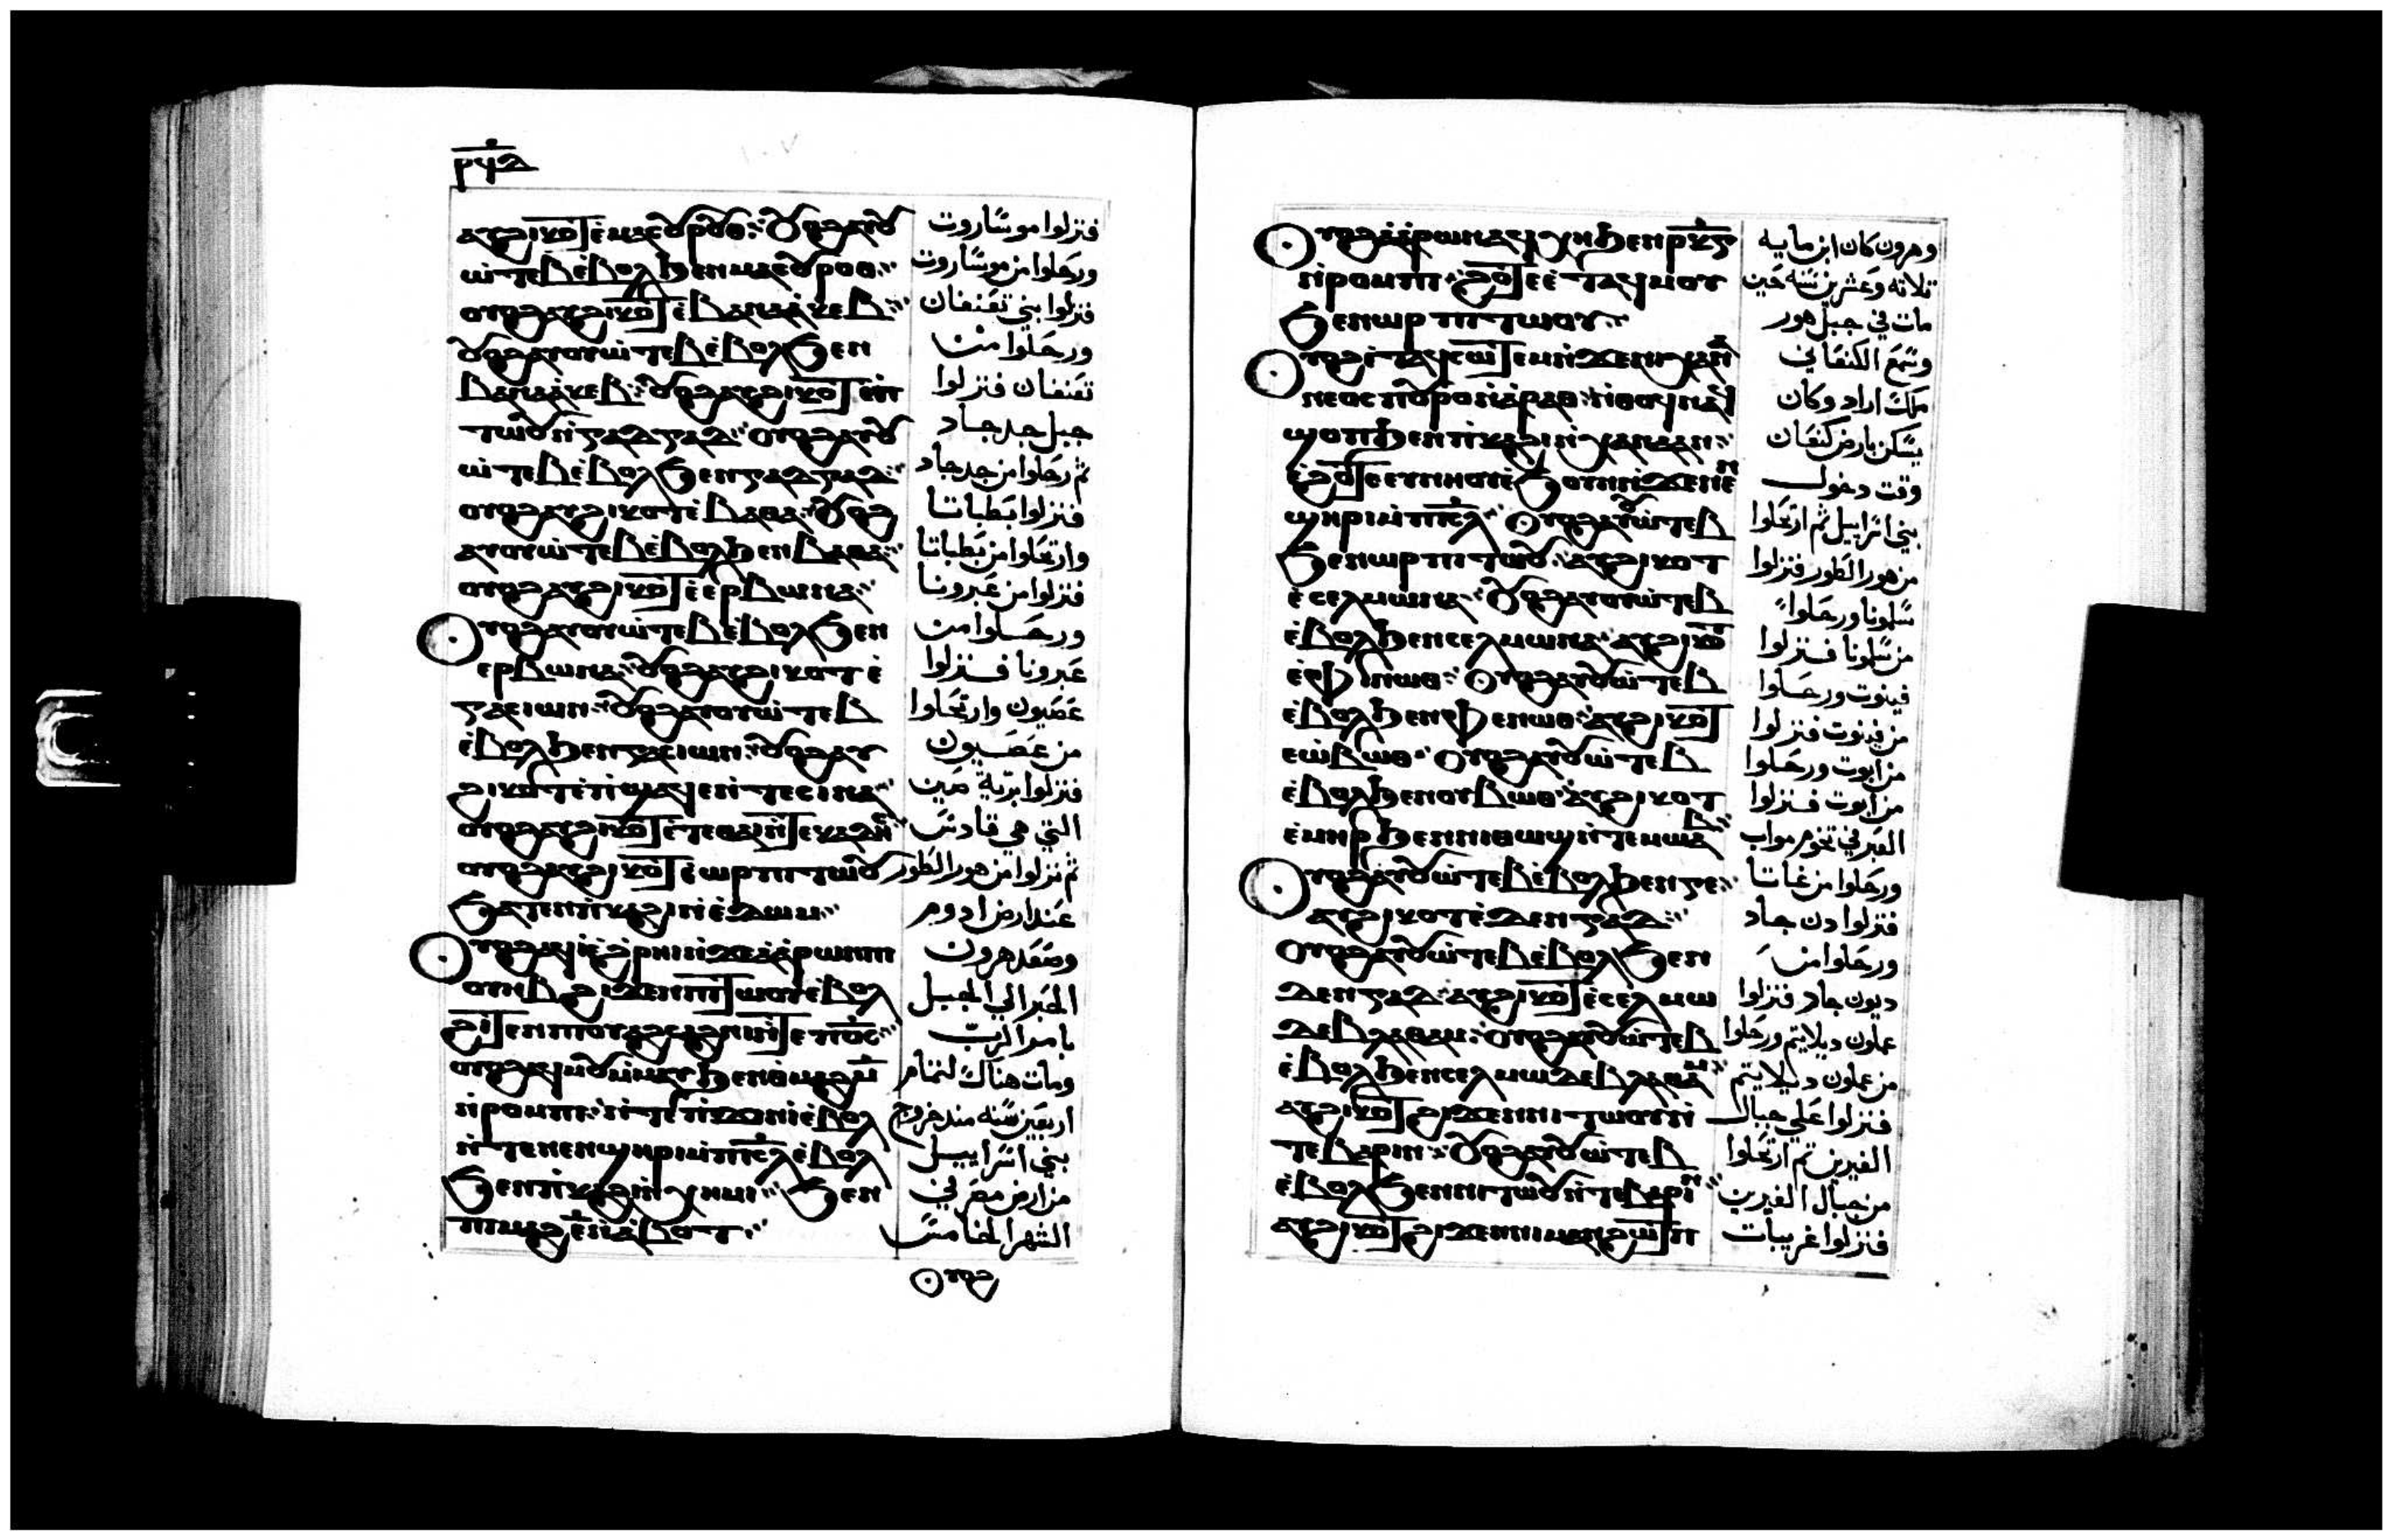 ⲣϥⲇ
ⲁⲩϩⲓⲕⲟϯ ⲉ̀ⲙⲁⲥⲟⲩⲣⲟⲩⲑ ⲟⲩⲟϩ ⲁⲩⲟⲩ
ⲱ̀ⲧⲉⲃ ⲉ̀ⲃⲟⲗ ϧⲉⲛ ⲙⲁⲥⲟⲩⲣⲟⲑ
ⲟⲩⲟϩ ⲁⲩϩⲓⲕⲟϯ ⲉ̀ⲃⲁⲛⲁⲓ̀ⲕⲉⲃ
ⲟⲩⲟϩ ⲁⲩⲟⲩⲱ̀ⲧⲉⲃ ⲉ̀ⲃⲟⲗ ϧⲉⲛ
ⲃⲁⲛⲁⲓ̀ⲕⲉⲃ ⲟⲩⲟϩ ⲁⲩϩⲓⲕⲟϯ ⲉ̀ⲡ̀
ⲧⲱⲟⲩ ⲛ̀ⲅⲁⲇⲅⲁⲇ ⲟⲩⲟϩ ⲁⲩⲟⲩ
ⲱ̀ⲧⲉⲃ ⲉ̀ⲃⲟⲗ ϧⲉⲛ ⲅⲁⲇⲅⲁⲇ
ⲟⲩⲟϩ ⲁⲩϩⲓⲕⲟϯ ⲉ̀ⲃⲁⲑⲁ ⲟⲩⲟϩ
ⲁⲩⲟⲩⲱ̀ⲧⲉⲃ ⲉ̀ⲃⲟⲗ ϧⲉⲛ ⲃⲁⲑⲁ
ⲟⲩⲟϩ ⲁⲩϩⲓⲕⲟϯ ⲉ̀ⲉⲣⲃⲱⲛⲁ
ⲟⲩⲟϩ ⲁⲩⲟⲩⲱⲧⲉⲃ ⲉ̀ⲃⲟⲗ ϧⲉⲛ
ⲉⲣⲃⲱⲛⲁ ⲟⲩⲟϩ ⲁⲩϩⲓⲕⲟϯ ⲉ̀
ⲅⲁⲥⲓⲱⲛ ⲟⲩⲟϩ ⲁⲩⲟⲩⲱ̀ⲧⲉⲃ
ⲉ̀ⲃⲟⲗ ϧⲉⲛ ⲅⲁⲥⲓⲱⲛ ⲟⲩⲟϩ ⲁⲩ
ϩⲓⲕⲟⲩϯ ⲉ̀ⲡ̀ϣⲁϥⲉ ⲛ̀ⲧⲉ ⲥⲓⲛⲁ
ⲟⲩⲟϩ ⲁⲩϩⲓⲕⲟϯ ⲉ̀ⲧⲉ ⲑⲁⲓ ⲧⲉ ⲕⲁⲇⲏⲥ
ⲟⲩⲟϩ ⲁⲩϩⲓⲕⲟϯ ⲉ̀ⲱⲣ ⲡⲓⲧⲱⲟⲩ
ϧⲁⲧⲉⲛ ⲡ̀ⲕⲁϩⲓ ⲛ̀ⲉ̀ⲇⲱⲙ
ⲟⲩⲟϩ ⲁϥⲓ̀ ⲉ̀ϩ̀ⲣⲏⲓ ⲛ̀ϫⲉ ⲁ̀ⲁ̀ⲣⲱⲛ ⲡⲓ
ⲟⲩⲏⲃ ϩⲓϫⲉⲛ ⲡⲓⲧⲱⲟⲩ ⲉ̀ⲃⲟⲗ
ϩⲓⲧⲉⲛ ⲡⲟⲩⲁϩⲥⲁϩⲛⲓ ⲛ̀ⲧⲉ ⲡϭⲥ
ⲟⲩⲟϩ ⲁϥⲙⲟⲩ ⲙ̀ⲙⲁⲩ ϧⲉⲛ ⲑ̀ⲙⲁϩ ⲙ̅
ⲛ̀ⲣⲟⲙⲡⲓ ⲛ̀ⲧⲉ ⲡ̀ϫⲓⲛⲓ̀ ⲉ̀ⲃⲟⲗ
ⲛ̀ⲧⲉ ⲛⲉⲛϣⲏⲣⲓ ⲙ̀ⲡⲓⲥ̅ⲗ̅ ⲉ̀ⲃⲟⲗ
ϧⲉⲛ ⲡ̀ⲕⲁϩⲓ ⲛ̀ⲭⲏⲙⲓ ϧⲉⲛ
ⲡⲓⲙⲁϩ ⲉ̅ ⲛ̀ⲁ̀ⲃⲟⲧ
فنزلوا موساروت
ورحلوا من موساروت
فنزلوا بني تقنقان
ورحلوا من
تقنقان فنزلوا
جبل جدجاد
ثم رحلوا من جدجاد
فنزلوا بطباتا
وارتحلوا من بطباتا
فنزلوا من عبرونا
ورحلوا من
عبرونا فنزلوا
عصيون وارتحلوا
من عصيون
فنزلوا برية صين
التي هي قادس
ثم نزلوا من هور الطور
عند ارض ادوم
وصعد هرون
الحبر الي الجبل
بامر الرب
ومات هناك لتمام
اربعين سنه منذ خروج
بني اسراييل
من ارض مصر في
الشهر الخامس
ⲟⲩⲟϩ
ⲟⲩⲟϩ ⲁ̀ⲁ̀ⲣⲱⲛ ⲛⲁϥⲭⲏ ϧⲉⲛ ⲣ̅ⲕ̅ⲅ̅
ⲛ̀ⲣⲟⲙⲡⲓ ϩⲟϯ ⲉ̀ⲧⲁϥⲙⲟⲩ
ϧⲉⲛ ⲱⲣ ⲡⲓⲧⲱⲟⲩ
ⲟⲩⲟϩ ⲉ̀ⲧⲁϥⲥⲱⲧⲉⲙ ⲛ̀ϫⲉ ⲡⲓⲭⲁⲛⲁ
ⲛⲉⲟⲥ ⲡⲟⲩⲣⲟ ⲛ̀ⲁ̀ⲣⲁⲑ ⲛ̀ⲑⲟϥ ⲛⲁϥ
ϣⲟⲡ ϧⲉⲛ ⲡ̀ⲕⲁϩⲓ ⲛ̀ⲭⲁⲛⲁⲁⲛ
ⲉ̀ϩⲟϯ ⲉⲩⲛⲏⲟⲩ ⲉ̀ϧⲟⲩⲛ ⲛ̀ϫⲉ ⲛⲉⲛ
ϣⲏⲣⲓ ⲙ̀ⲡⲓⲥ̅ⲗ̅ ⲟⲩⲟϩ ⲁⲩⲟⲩⲱ̀ⲧⲉⲃ
ϧⲉⲛ ⲱⲣ ⲡⲓⲧⲱⲟⲩ ⲁⲩϩⲓⲕⲟϯ
ⲉ̀ⲥⲉⲗⲙⲱⲛⲁ ⲟⲩⲟϩ ⲁⲩⲟⲩⲱ̀ⲧⲉⲃ
ⲉ̀ⲃⲟⲗ ϧⲉⲛ ⲥⲉⲗⲙⲱⲛⲁ ⲁⲩϩⲓⲕⲟϯ
ⲉ̀ⲫⲓⲛⲱⲑ ⲟⲩⲟϩ ⲁⲩⲟⲩⲱ̀ⲧⲉⲃ
ⲉ̀ⲃⲟⲗ ϧⲉⲛ ⲫⲉⲛⲱⲑ ⲁⲩϩⲓⲕⲟϯ
ⲉⲱ̀ⲃⲱⲑ ⲟⲩⲟϩ ⲁⲩⲟⲩⲱ̀ⲧⲉⲃ
ⲉ̀ⲃⲟⲗ ϧⲉⲛ ⲟⲩⲃⲱⲑ ⲁⲩϩⲓⲕⲟϯ
ⲉ̀ⲙⲏⲣ ϧⲉⲛ ⲛⲓⲑⲱϣ ⲛ̀ⲧⲉ ⲙⲱⲁⲃ
ⲟⲩⲟϩ ⲁⲩⲟⲩⲱ̀ⲧⲉⲃ ⲉ̀ⲃⲟⲗ ϧⲉⲛ ⲅⲉ
ⲁⲩϩⲓⲕⲟϯ ⲉ̀ⲇⲉⲛ ⲅⲁⲇ
ⲟⲩⲟϩ ⲁⲩⲟⲩⲱ̀ⲧⲉⲃ ⲉ̀ⲃⲟⲗ ϧⲉⲛ
ⲇⲉⲛ ⲅⲁⲇ ⲁⲩϩⲓⲕⲟϯ ⲉ̀ⲥⲉⲗⲙⲱ
ⲇⲉⲃⲗⲁⲑⲁⲙ ⲟⲩⲟϩ ⲁⲩⲟⲩⲱ̀ⲧⲉⲃ
ⲉ̀ⲃⲟⲗ ϧⲉⲛ ⲥⲉⲗⲙⲱ ⲇⲉⲃⲗⲁⲑⲁⲙ
ⲁⲩϩⲓⲕⲟϯ ϩⲓϫⲉⲛ ⲛⲓⲧⲱⲟⲩ ⲛ̀
ⲧⲉ ⲃⲁⲣⲓⲛ ⲟⲩⲟϩ ⲁⲩⲟⲩⲱ̀ⲧⲉⲃ
ⲉ̀ⲃⲟⲗ ϧⲉⲛ ⲛⲓⲧⲱⲟⲩ ⲛ̀ⲧⲉ ⲃⲁⲣⲓⲛ
ⲁⲩϩⲓⲕⲟϯ ϩⲓϫⲉⲛ ⲡⲓⲙⲁⲛϩⲱⲧⲡ
وهرون كان ابن مايه
ثلاثه وعشرين سنه حين
مات في جبل هور
وسمع الكنعاني
ملك اراد وكان
يسكن بارض كنعان
وقت دخول
بني اسراييل ثم ارتحلوا
من هور الطور فنزلوا
سلمونا ورحلوا
من سلمونا فنزلوا
فينوت ورحلوا
من فينوت فنزلوا
من ابوت ورحلوا
من ابوت فنزلوا
العبر في تخوم مواب
ورحلوا من غاتا
فنزلوا دن جاد
ورحلوا من
ديون جاد فنزلوا
علون ديلايتم ورحلوا
من علون ديلايتم
فنزلوا علي جبال
العبرين ثم ارتحلوا
من جبال العبرين
فنزلوا غريبات